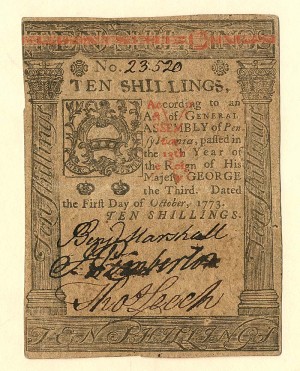 No. 23520
TEN SHILLINGS,
According to an
Act of GENERAL
ASSEMBLY of Penn
sylvania, passed in
the 13th Year of
the Reign of His
Majesty GEORGE
the Third. Dated
the First Day of October, 1773.
TEN SHILLINGS.
Benj Marshall
Pemberton
Tho Leech
Ten Shillings
Ten Shillings
TEN SHILLINGS